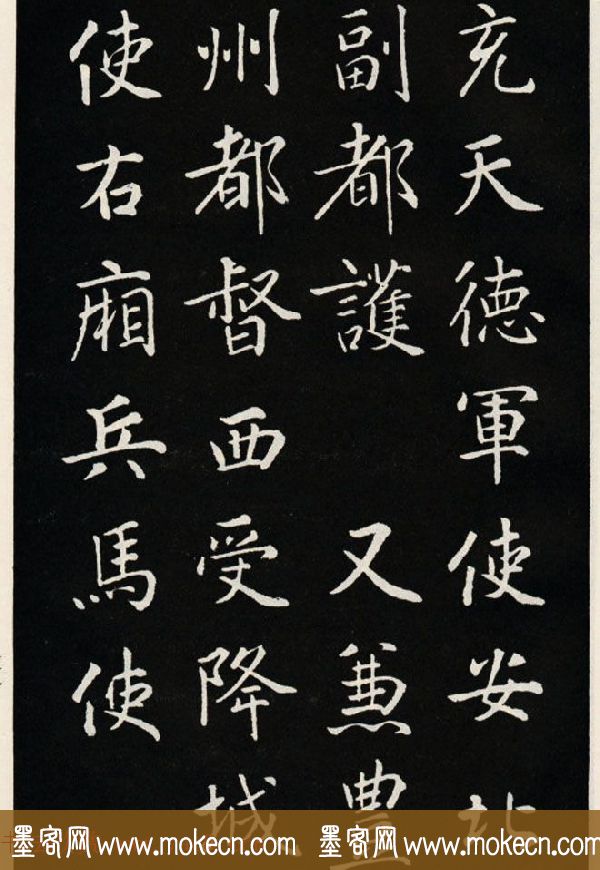 充天德軍使安北
副都護 又兼豊
州都督西受降城
使右廂兵馬使
墨客网 www.mokecn.com 墨客网 www.mokecn.com